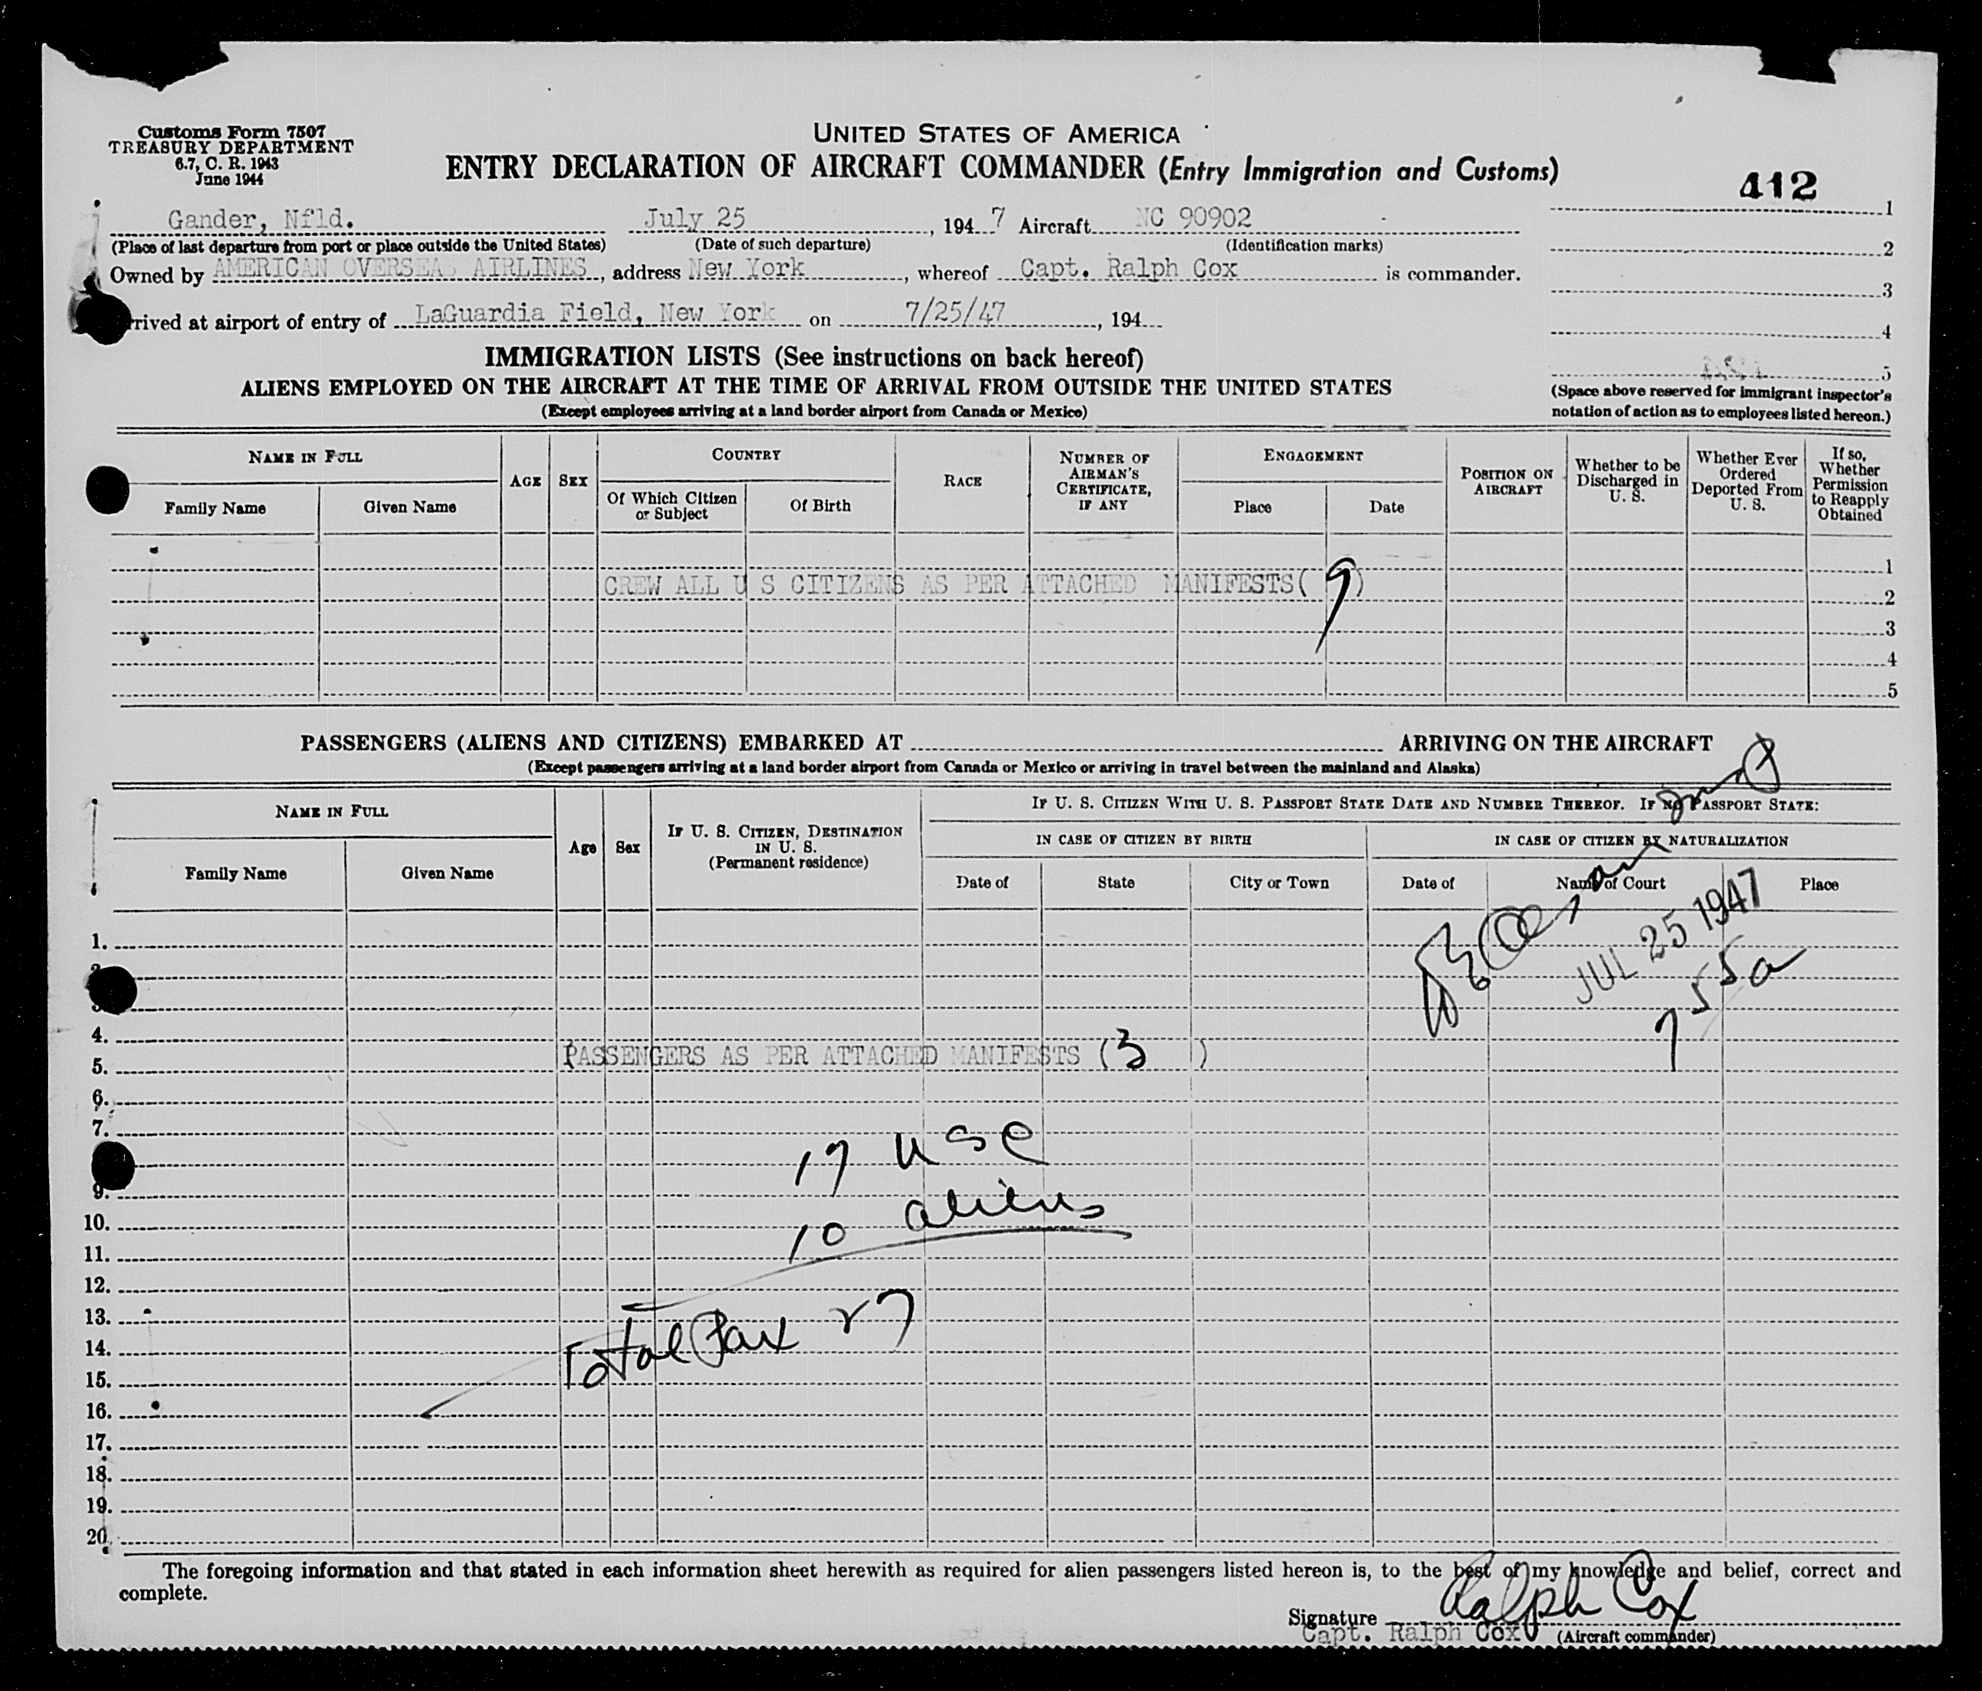 Customs Form 7507
TREASURY DEPARTMENT
6.7, C. R. 1943
June 1944
UNITED STATES OF AMERICA
ENTRY DECLARATION OF AIRCRAFT COMMANDER (Entry Immigration and Customs)
412
Gander, Nfld. July 25, 1947 Aircraft NC 90902
(Place of last departure from port or place outside the United States) (Date of such departure) (Identification marks)
Owned by AMERICAN OVERSEAS AIRLINES, address New York, whereof Capt. Ralph Cox is commander.
rrived at airport of entry of LaGuardia Field, New York on 7/25/47, 194
1
2
3
4
5
(Space above reserved for immigrant inspector's
notation of action as to employees listed hereon.)
IMMIGRATION LISTS (See instructions on back hereof)
ALIENS EMPLOYED ON THE AIRCRAFT AT THE TIME OF ARRIVAL FROM OUTSIDE THE UNITED STATES
(Except employees arriving at a land border airport from Canada or Mexico)
NAME IN FULL
Family Name
Given Name
AGE
SEX
COUNTRY
Of Which Citizen
or Subject
Of Birth
RACE
NUMBER OF
AIRMAN'S
CERTIFICATE,
IF ANY
ENGAGEMENT
Place
Date
POSITION ON
AIRCRAFT
Whether to be
Discharged in
U. S.
Whether Ever
Ordered
Deported From
U. S.
If so,
Whether
Permission
to Reapply
Obtained
1
CREW ALL U S CITIZENS AS PER ATTACHED MANIFESTS( 9 )
2
3
4
5
PASSENGERS (ALIENS AND CITIZENS) EMBARKED AT ARRIVING ON THE AIRCRAFT
(Except passengers arriving at a land border airport from Canada or Mexico or arriving in travel between the mainland and Alaska)
NAME IN FULL
Family Name
Given Name
Age
Sex
IF U. S. CITIZEN, DESTINATION
IN U. S.
(Permanent residence)
IF U. S. CITIZEN WITH U. S. PASSPORT STATE DATE AND NUMBER THEREOF. IF NO PASSPORT STATE:
IN CASE OF CITIZEN BY BIRTH
Date of
State
City or Town
IN CASE OF CITIZEN BY NATURALIZATION
Date of
Name of Court
Place
JUL 25 1947
7 55a
1.
3.
4.
PASSENGERS AS PER ATTACHED MANIFESTS (3 )
5.
6.
7.
17 USC
9.
10 aliens
10.
11.
12.
13.
Total Pax 27
14.
15.
16.
17.
18.
19.
20.
The foregoing information and that stated in each information sheet herewith as required for alien passengers listed hereon is, to the best of my knowledge and belief, correct and
complete.
Signature Ralph Cox
Capt. Ralph Cox (Aircraft commander)